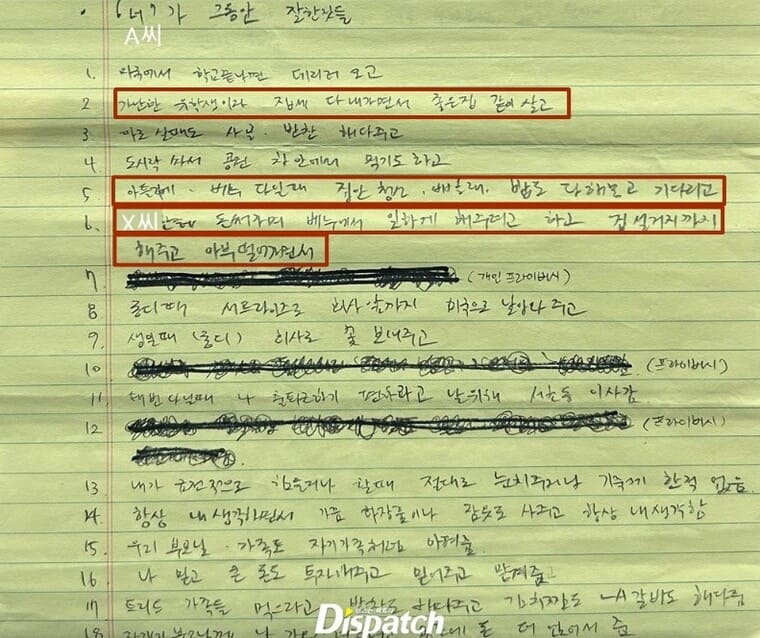 그동안 잘한것들
A씨
1. 미국에서 학교끝나면 데리러 오고
2 가난한 유학생이라 집세 다내가면서 좋은집 같이 살고
3 따로 살때도 사골. 반찬 해다주고
4 도시락 싸서 공원 차안에서 먹기도 하고
5 다닐때 집안 청소, 빨래, 밥도 다해놓고 기다리고
6. X씨한테 돈써가며 베누에서 일하게 해주려고 하고 접시설거지까지
해주고 아부떨어가면서
7 (개인 프라이버시)
8 롱디때 서프라이즈로 회사앞까지 미국으로 날아와 주고
9. 생일때 (롱디) 회사로 꽃 보내주고
10 (프라이버시)
11 나 출퇴근하기 편하라고 날위해 서초동 이사감
12 (프라이버시)
13 내가 금전적으로 힘들거나 할때 절대로 눈치주거나 기죽게 한적 없음.
14. 항상 내생각하면서 가끔 화장품이나 잠옷도 사주고 항상 내생각함
15. 우리 부모님. 가족도 자기가족처럼 아껴줌
16 나 믿고 큰 돈도 투자해주고 믿어주고 맡겨줌
17 가족들 먹으라고 반찬도 해다주고 김치찜도 LA갈비도 해다줌
18
Dispatch